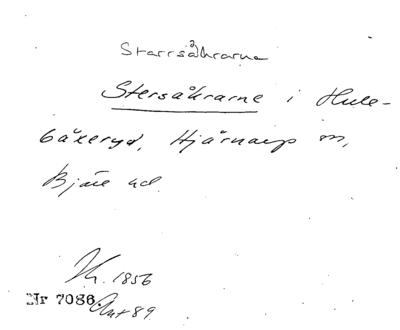 Starrsåkrarne
Stersåkrarne i Hule-
bäxeryd, Hjärnarp sn,
Bjäre hd.
1856
Nr 7086. Ant 89